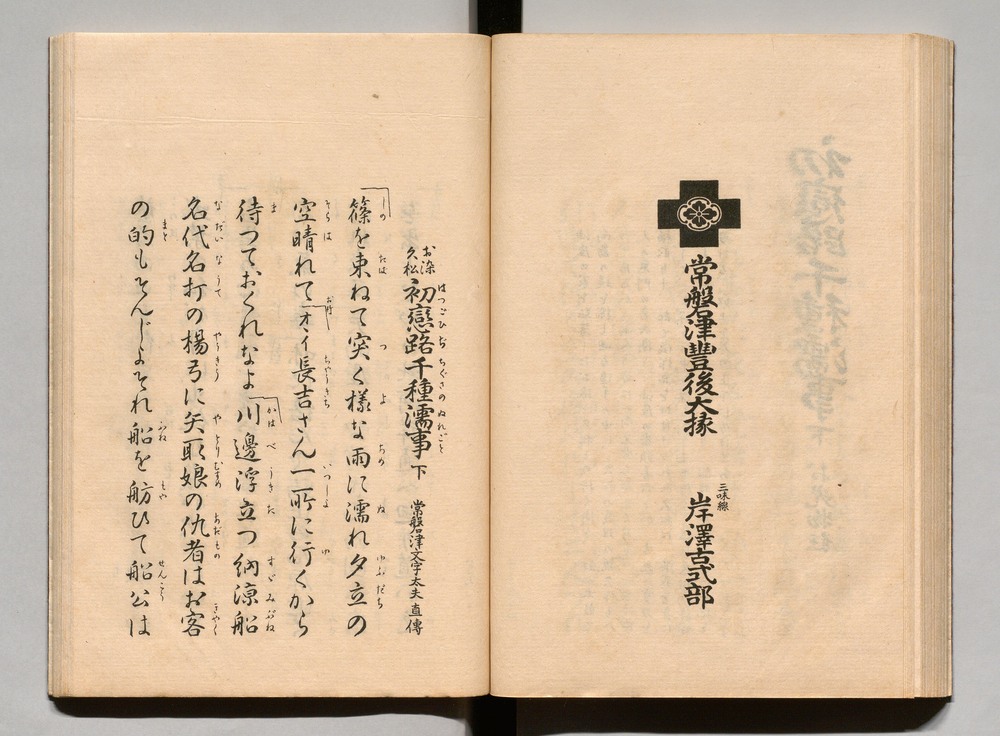 常磐津豐後大掾
三味線
岸澤古式部
お染
久松
初戀路千種濡事 下
はつこひぢちぐさのぬれごと
常磐津文字太夫直傳
篠を束ねて突く樣な雨に濡れ夕立の
空晴れてオヽイ長吉さん一所に行くから
待つておくれなよ川邊浮立つ納凉船
名代名打の楊弓に矢取娘の仇者はお客
の的もそんじよそれ船を舫ひて船公は